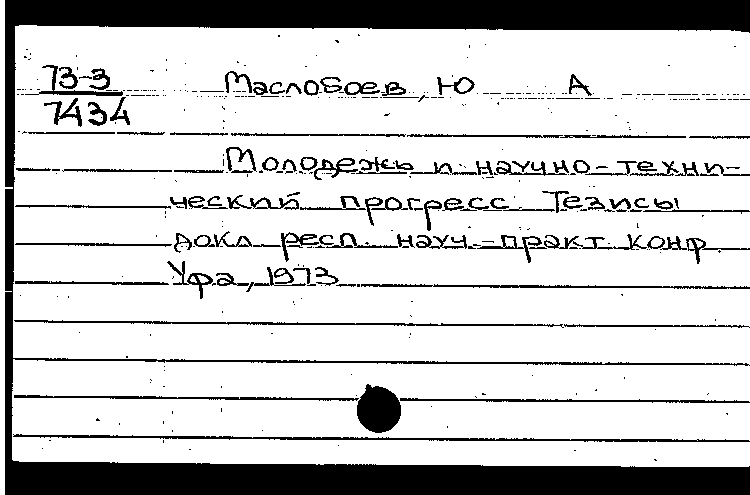 73-3
7434
Маслобоев, Ю А
Молодежь и научно-техни-
ческий прогресс Тезисы
докл респ. науч.-практ конф
Уфа, 1973